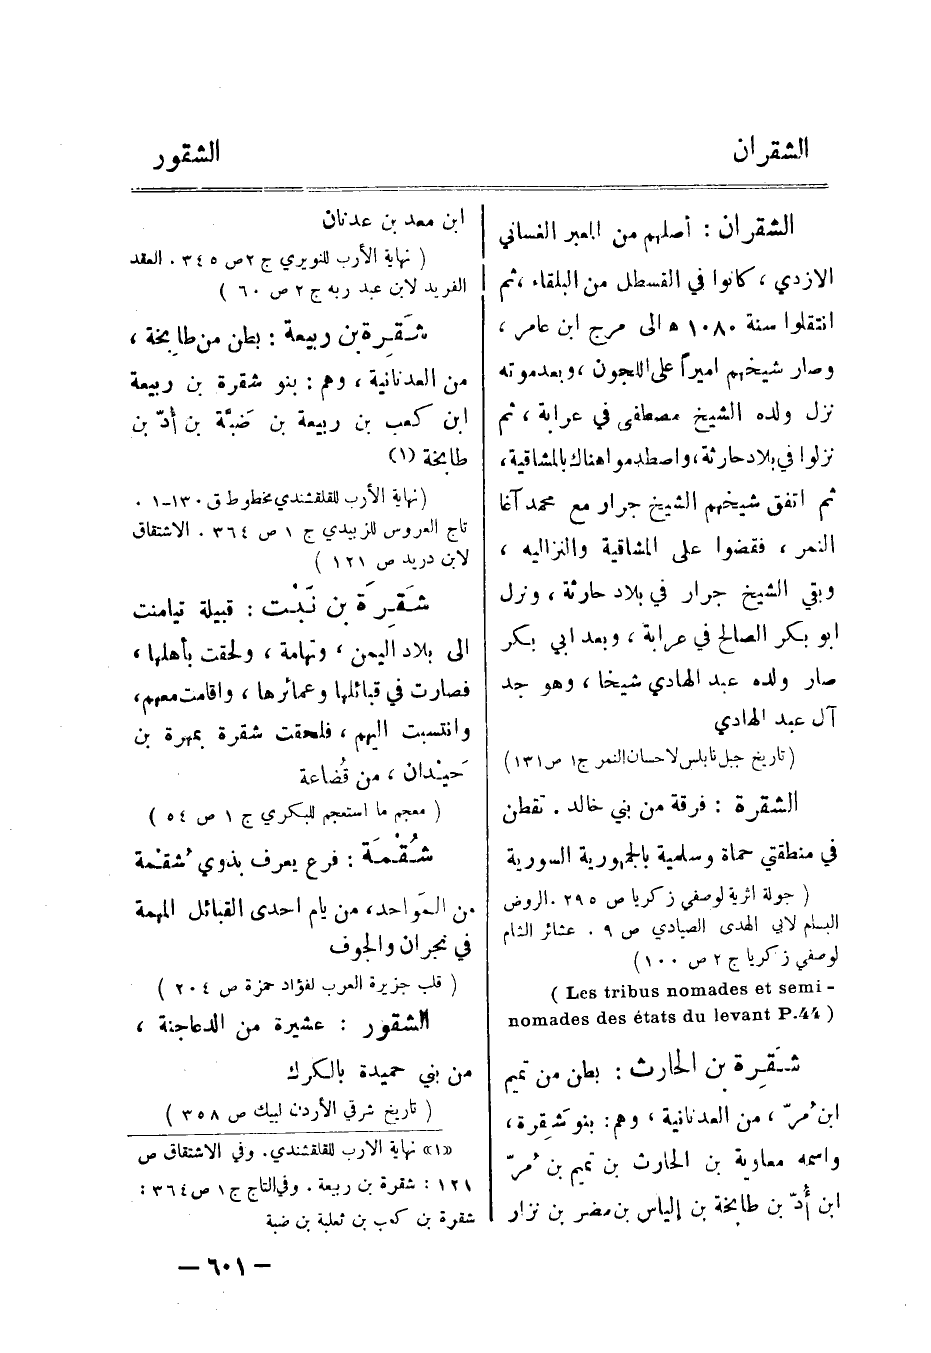 الشقران
الشقور
الشقران : أصلهم من المعبر الغساني
الازدي ، كانوا في القسطل من البلقاء ، ثم
انتقلوا سنة ١٠٨٠ ه الى مرج ابن عامر ،
وصار شيخهم اميراً على اللجون ، وبعد موته
نزل ولده الشيخ مصطفى في عرابة ، ثم
نزلوا في بلاد حارثة ، واصطدموا هناك بالمشاقية ،
ثم اتفق شيخهم الشيخ جرار مع محمد آغا
النمر ، فقضوا على المشاقية والنزاليه ،
وبقي الشيخ جرار في بلاد حارثة ، ونزل
ابو بكر الصالح في عرابة ، وبعد ابي بكر
صار ولده عبد الهادي شيخا ، وهو جد
آل عبد الهادي
(تاريخ جبل نابلس لاحسان النمر ج١ ص ١٣١)
الشقرة : فرقة من بني خالد . تقطن
في منطقتي حماة وسلمية بالجمهورية السورية
( جولة اثرية لوصفي زكريا ص ٢٩٥ . الروض
البسام لابي الهدى الصيادي ص ٩ . عشائر الشام
لوصفي زكريا ج ٢ ص ١٠٠)
( Les tribus nomades et semi -
nomades des états du levant P.44 )
شَقِرة بن الحارث : بطن من تميم
ابن مُرّ ، من العدنانية ، وهم : بنو شَقِرة ،
واسمه معاوية بن الحارث بن تميم بن مُرّ
ابن أُدّ بن طابخة بن إلياس بن مضر بن نزار
ابن معد بن عدنان
( نهاية الأرب للنويري ج ٢ ص ٣٤٥ . العقد
الفريد لابن عبد ربه ج ٢ ص ٦٠ )
شَقِرة بن ربيعة : بطن من طابخة ،
من العدنانية ، وهم : بنو شقرة بن ربيعة
ابن كعب بن ربيعة بن ضبَّة بن أُدّ بن
طابخة (١)
(نهاية الأرب للقلقشندي مخطوط ق ١٣٠-١ .
تاج العروس للزبيدي ج ١ ص ٣٦٤ . الاشتقاق
لابن دريد ص ١٢١ )
شَقِرَة بن نَبْت : قبيلة تيامنت
الى بلاد اليمن ، وتهامة ، ولحقت بأهلها ،
فصارت في قبائلها وعمائرها ، واقامت معهم ،
وانتسبت اليهم ، فلحقت شقرة بمهرة بن
حَيْدان ، من قُضاعة
( معجم ما استعجم للبكري ج ١ ص ٥٤ )
شُقْمَة : فرع يعرف بذوي شُقْمة
من المَواحد ، من يام احدى القبائل المهمة
في نجران والجوف
( قلب جزيرة العرب لفؤاد حمزة ص ٢٠٤ )
الشقور : عشيرة من الدعاجنة ،
من بني حميدة بالكرك
( تاريخ شرقي الأردن لبيك ص ٣٥٨ )
«١» نهاية الارب للقلقشندي . وفي الاشتقاق ص
١٢١ : شقرة بن ربيعة . وفي التاج ج ١ ص ٣٦٤ :
شقرة بن كعب بن ثعلبة بن ضبة
— ٦٠١ —